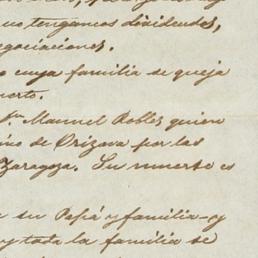 no tengamos dividendos,
egociaciones.
o cuya familia se queja
uerto.
Manuel Robles quien
ino de Orizava por las
Zaragza. Su muerte es
a su Papá y familia y
y toda la familia se